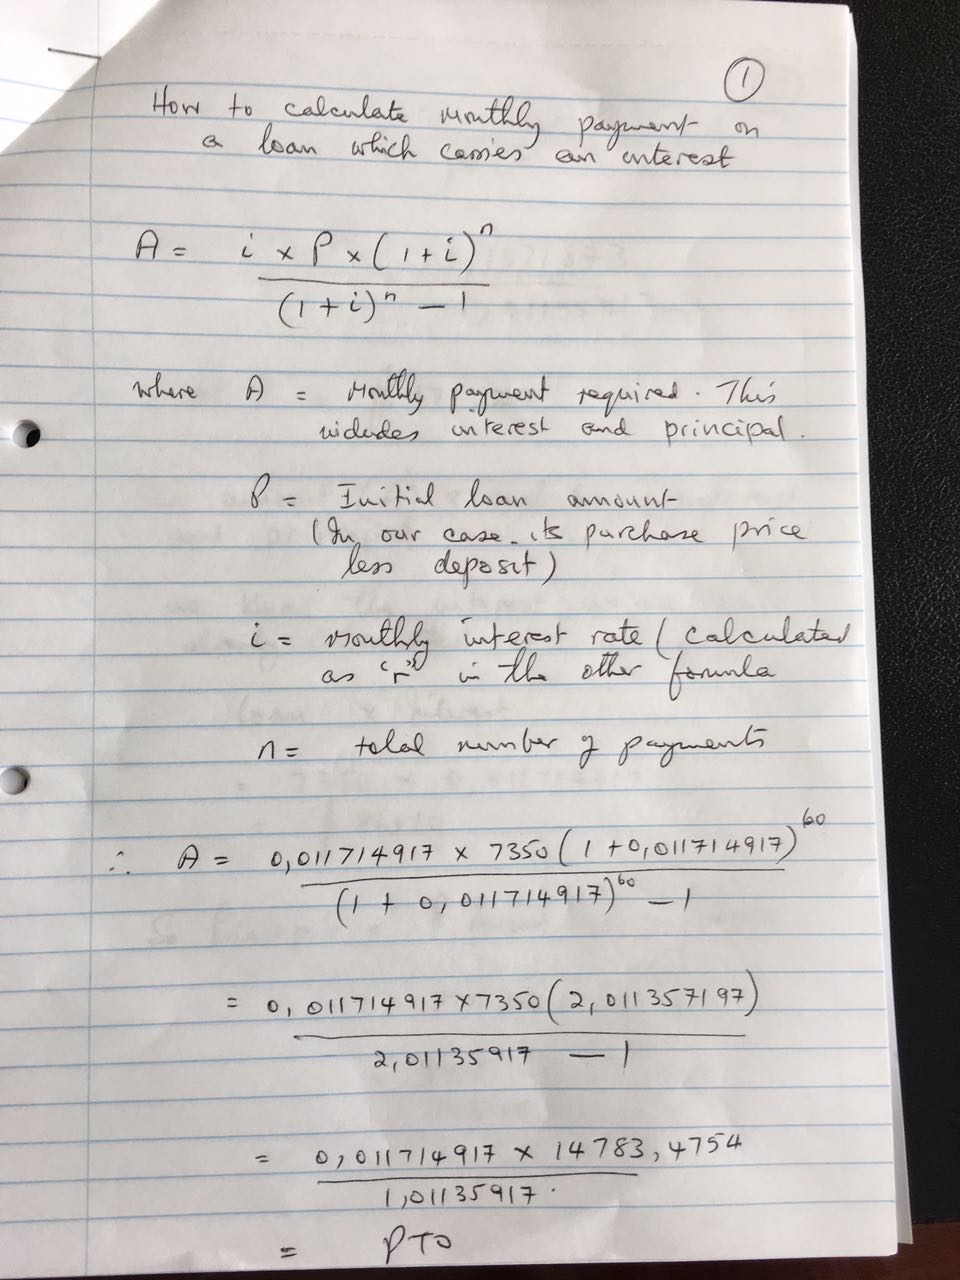 1
How to calculate monthly payment on
a loan which carries an interest
A = i × P × (1+i)^n
(1+i)^n − 1
where A = Monthly payment required. This
includes interest and principal.
P = Initial loan amount
(In our case. its purchase price
less deposit)
i = Monthly interest rate (calculated
as "r" in the other formula
n = total number of payments
∴ A = 0,011714917 × 7350(1+0,011714917)^60
(1 + 0,011714917)^60 − 1
= 0,011714917×7350(2,011357197)
2,01135917 − 1
= 0,011714917 × 14783,4754
1,01135917.
= PTO